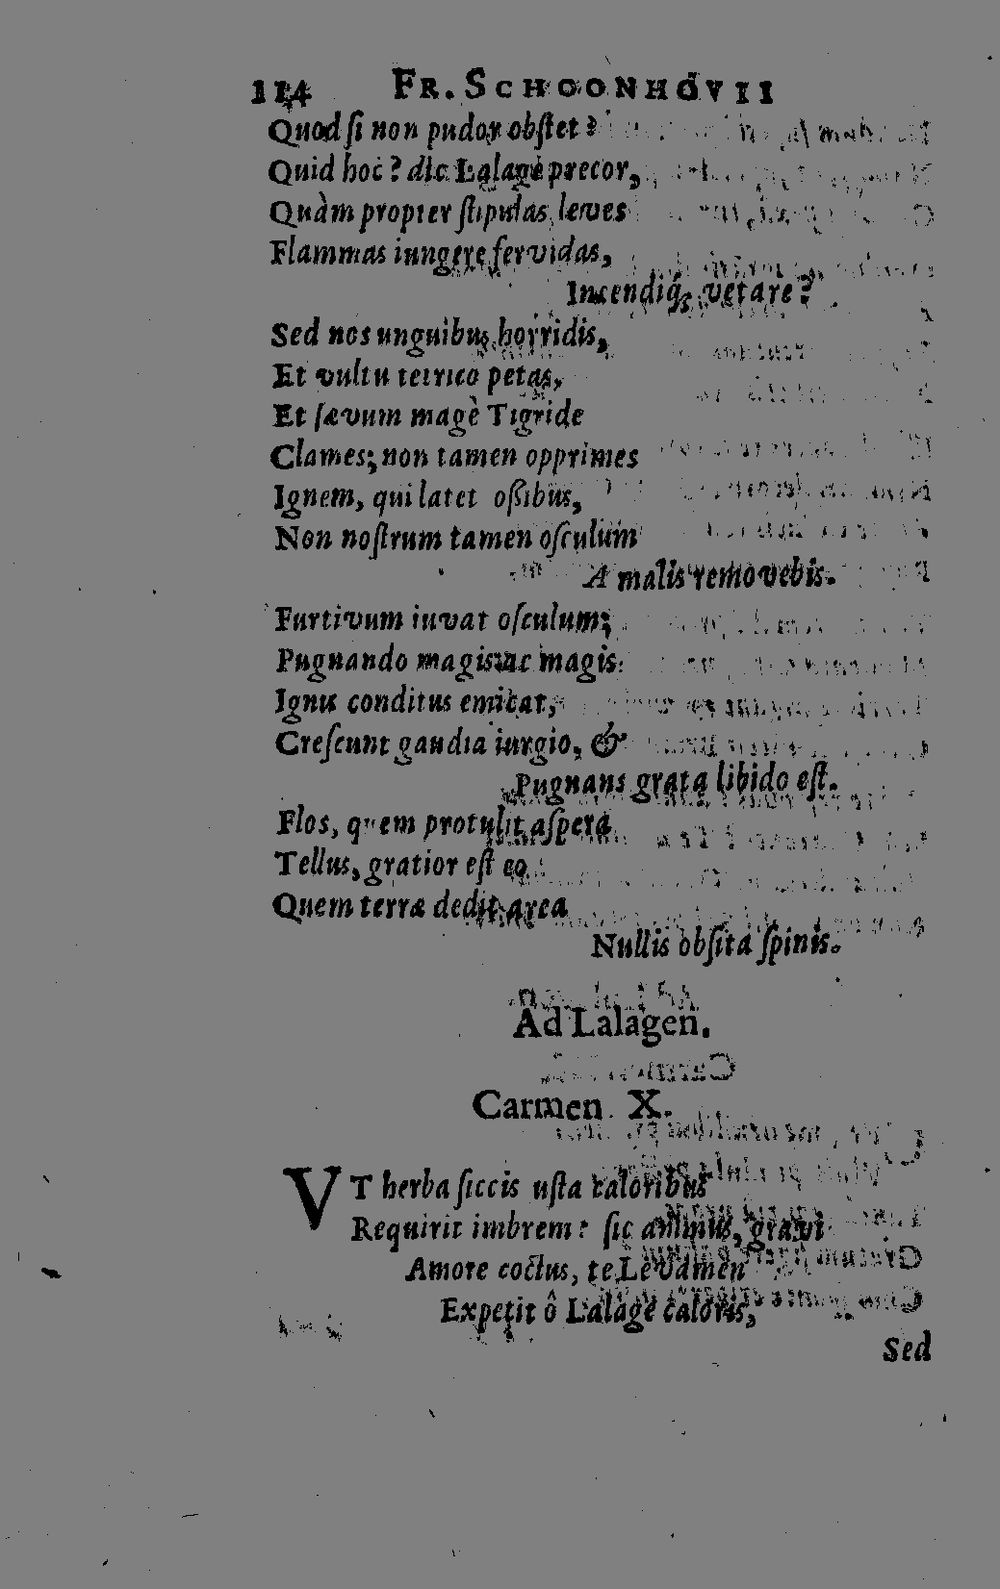 114 FR. SCHOONHOVII
Quod si non pudor obstet?
Quid hoc? dic Lalage precor,
Quàm propter stipulas leves
Flammas iungere fervidas,
Incendiq́; vetare?
Sed nos unguibus horridis,
Et vultu tetrico petas,
Et sævum magè Tigride
Clames; non tamen opprimes
Ignem, qui latet ossibus,
Non nostrum tamen osculum
A malis removebis.
Furtivum iuvat osculum;
Pugnando magis ac magis
Ignis conditus emicat,
Crescunt gaudia iurgio, &
Pugnans grata libido est.
Flos, quem protulit aspera
Tellus, gratior est eo
Quem terræ dedit area
Nullis obsita spinis.
Ad Lalagen.
Carmen X.
VT herba siccis usta caloribus
Requirit imbrem: sic animus, gravi
Amore coctus, te Levamen
Expetit ô Lalage caloris,
Sed